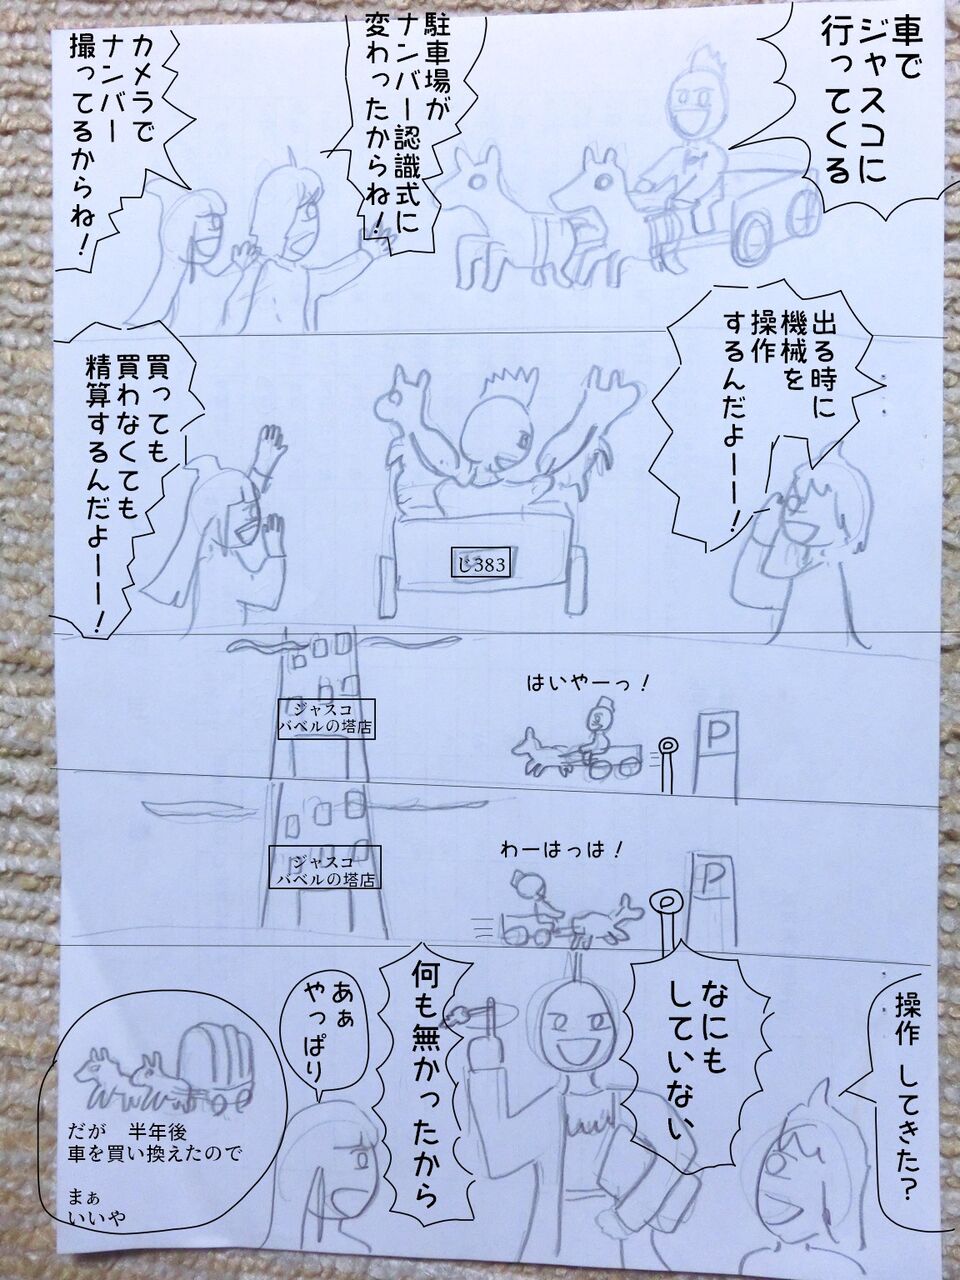 車で
ジャスコに
行ってくる
駐車場が
ナンバー認識式に
変わったからね!
カメラで
ナンバー
撮ってるからね!
出る時に
機械を
操作
するんだよーー!
買っても
買わなくても
精算するんだよーー!
じ383
ジャスコ
バベルの塔店
はいやーっ!
P
ジャスコ
バベルの塔店
わーはっは!
P
操作 してきた?
なにも
していない
何も無かったから
あぁ
やっぱり
だが 半年後
車を買い換えたので
まぁ
いいや